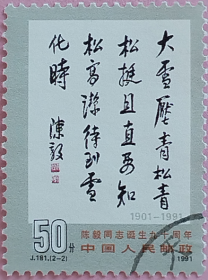 大雪壓青松青
松挺且直要知
松高潔待到雪
化時 陳毅
1901-1991
陈毅同志诞生九十周年
50分
中国人民邮政
J.181.(2-2)
1991